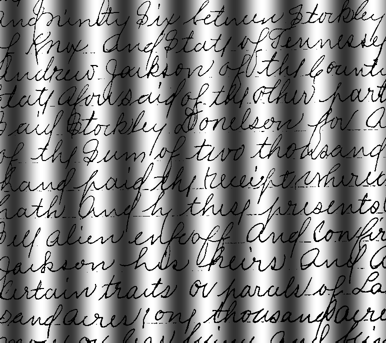 and ninety Six between Stockley
of Knox And State of Tennessee
Andrew Jackson of the Count
tate aforesaid of the other part
said Stockley Donelson for A
of the Sum of two thousand
hand paid the receipt wherio
hath And by these presents
sell alien enfeoff And Confir
Jackson his heirs And A
certain traits or parcels of La
sand acres one thousand acre